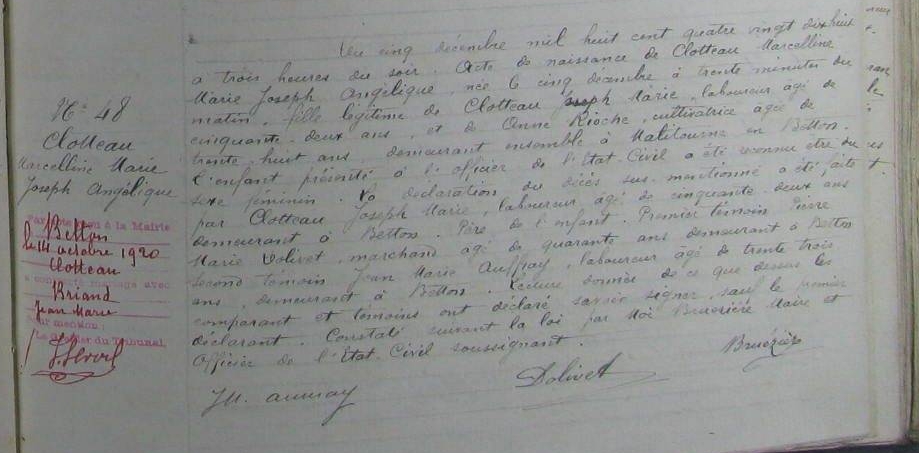 N° 48
Clotteau
Marcelline Marie
Joseph Angélique
à la Mairie
Betton
le 14 octobre 1920
Clotteau
a contracté mariage avec
Briand
Jean Marie
Pour mention :
Le Greffier du Tribunal,
Du cinq décembre mil huit cent quatre vingt dix huit
a trois heures du soir. Acte de naissance de Clotteau Marcelline
Marie Joseph Angélique, née le cinq décembre à trente minutes du
matin, fille légitime de Clotteau Joseph Marie, laboureur âgé de
cinquante-deux ans, et de Anne Rioche, cultivatrice âgée de
trente huit ans, demeurant ensemble à Maltourne en Betton.
L'enfant présenté à l'officier de l'Etat-Civil a été reconnu être du
sexe féminin. La déclaration du décès sus-mentionné a été faite
par Clotteau Joseph Marie, laboureur âgé de cinquante-deux ans
demeurant à Betton. Père de l'enfant. Premier témoin Pierre
Marie Dolivet, marchand âgé de quarante ans demeurant à Betton
Second témoin Jean Marie Auffray, laboureur âgé de trente trois
ans, demeurant à Betton. Lecture donnée de ce que dessus les
comparant et témoins ont déclaré savoir signer, sauf le premier
déclarant. Constaté suivant la loi par Moi Maire et
Officier de l'Etat-Civil soussignant.
Dolivet